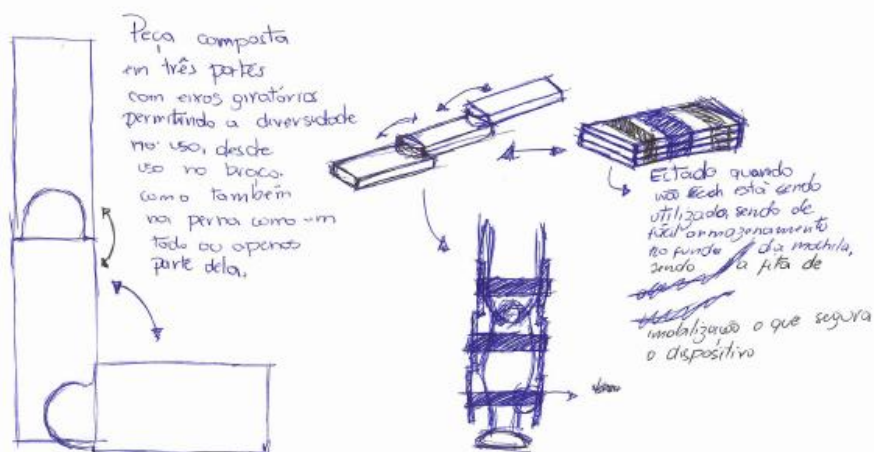 Peça composta
em três partes
com eixos giratórios
permitindo a diversidade
no uso, desde
uso no braço,
como também
na perna como um
todo ou apenas
parte dela.
Estado quando
não está sendo
utilizada, sendo de
fácil armazenamento
no fundo da mochila,
sendo a fita de
imobilização o que segura
o dispositivo